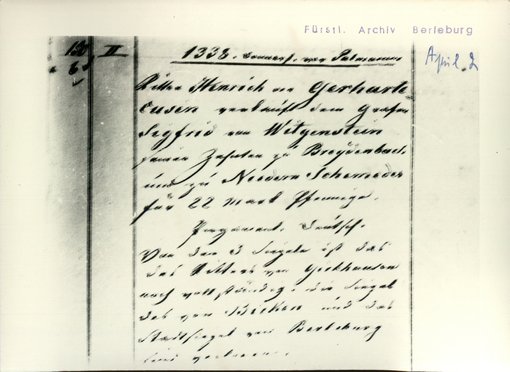 Fürstl. Archiv Berleburg
April. 2
II
1338. Donnerst. vor Palmarum
Ritter Heinrich von Gerharte-
cusen verkauft dem Grafen
Segfrid von Witgenstein
seinen Zehnten zu Breydenbach
und zu Nedern-Schemeder
für 22 Mark Pfennige.
Pergament. Deutsch.
Von den 3 Siegeln ist das
des Ritters von Gerkhausen
noch vollständig, die Siegel
des von und das
Stadtsiegel von Berleburg
sind verloren.